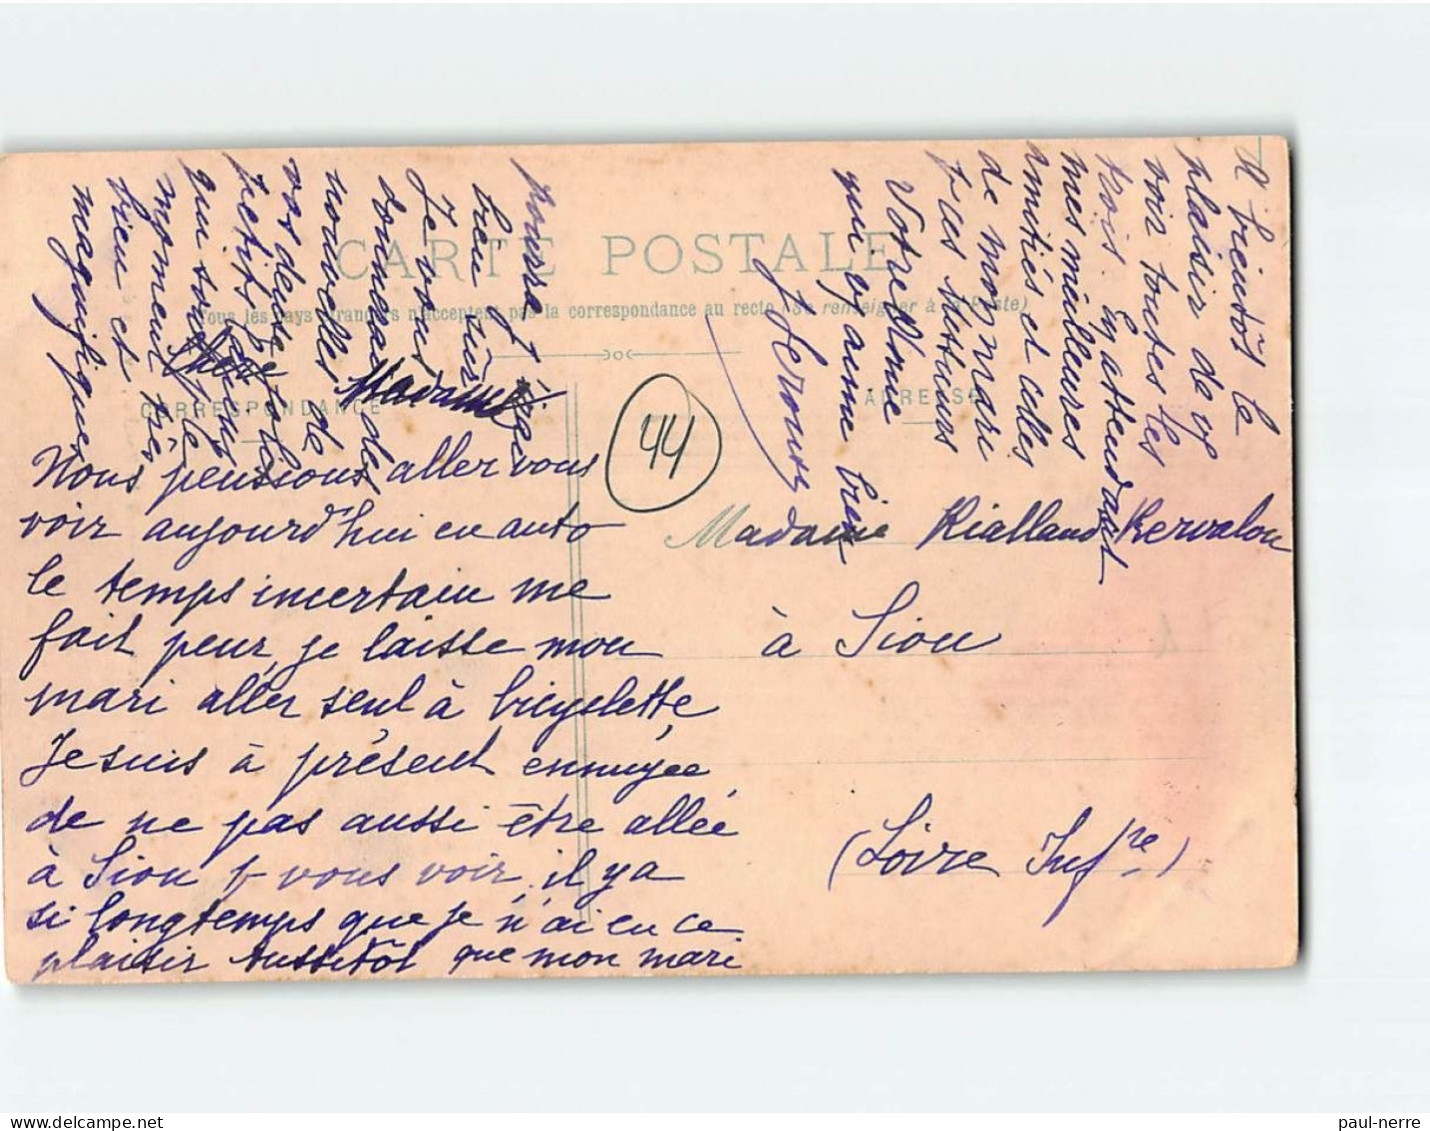 CARTE POSTALE
Tous les pays étrangers n'acceptent pas la correspondance au recto (Se renseigner à la Poste)
CORRESPONDANCE
ADRESSE
44
Chère Madame
Nous pensions aller vous
voir aujourd'hui en auto
le temps incertain me
fait peur, je laisse mon
mari aller seul à bicyclette
Je suis à présent ennuyée
de ne pas aussi être allée
à Sion p vous voir, il y a
si longtemps que je n'ai eu ce
plaisir aussitôt que mon mari
pourra
bien sûr
Je vous
donnerai des
nouvelles de
vos deux
petits
qui sont
mpment très
bien et
magnifiques
A bientôt le
plaisir de vs
voir toutes les
trois. En attendant
mes meilleures
amitiés et celles
de mon mari
Votre Amie
qui vs aime bien
Madame Rialland Kervalou
à Sion
(Loire Infre)
paul-nerre